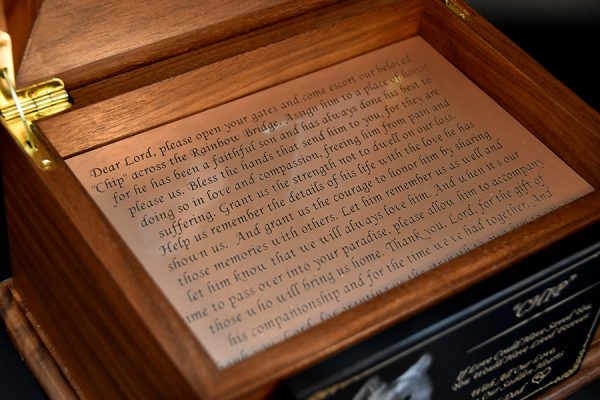 Dear Lord, please open your gates and come escort our beloved
"Chip" across the Rainbow Bridge. Assign him to a place of honor
for he has been a faithful son and has always done his best to
please us. Bless the hands that send him to you, for they are
doing so in love and compassion, freeing him from pain and
suffering. Grant us the strength not to dwell on our loss.
Help us remember the details of his life with the love he has
shown us. And grant us the courage to honor him by sharing
those memories with others. Let him remember us as well and
let him know that we will always love him. And when it's our
time to pass over into your paradise, please allow him to accompany
those who will bring us home. Thank you, Lord, for the gift of
his companionship and for the time we've had together. And
you, Lord, for granting
"CHIP"
If Love Could Have Saved You
You Would Have Lived Forever.
With All Our Love,
Our
Dad